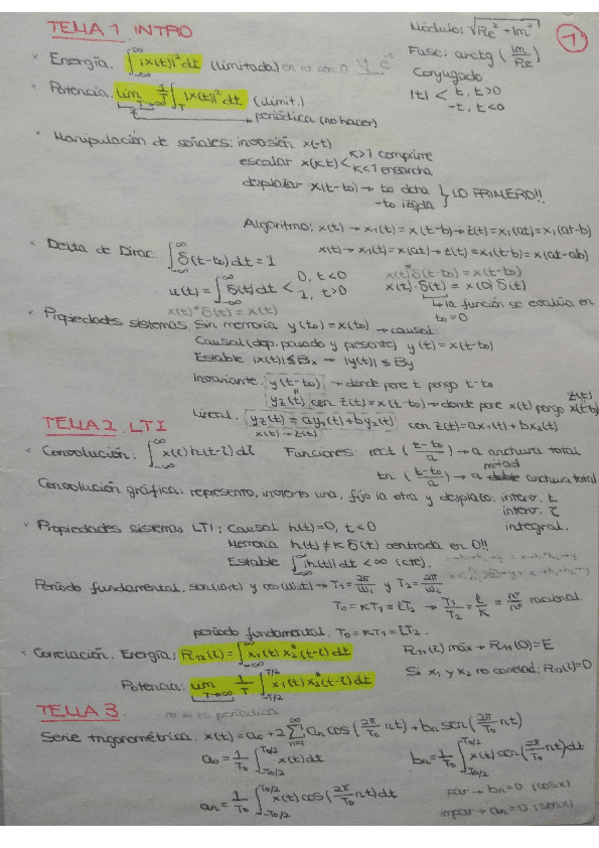 TEMA 1. INTRO
Módulo: √(Re² + Im²)
-1-
Fase: arctg (Im/Re)
Conjugado.
|t| < t, t>0
-t, t<0
* Energía. ∫_{-∞}^{∞} |x(t)|² dt (Limitada) en ∞ con 0
* Potencia. lim_{T→∞} 1/T ∫_T |x(t)|² dt (Limit.)
periódica (no hacer)
* Manipulación de señales: inversión x(-t)
escalar x(kt) < k>1 comprime
k<1 ensancha
desplazar x(t-to) → to dcha
-to izqda } LO PRIMERO!!
Algoritmo: x(t) → x₁(t) = x(t-b) → z(t) = x₁(at) = x(at-b)
x(t) → x₁(t) = x(at) → z(t) = x₁(t-b) = x(at-ab)
* Delta de Dirac. ∫_{-∞}^{∞} δ(t-to) dt = 1
u(t) = ∫_{-∞}^{∞} δ(t) dt < 0, t<0
1, t>0
x(t) * δ(t-to) = x(t-to)
x(t)·δ(t) = x(0) δ(t)
↳ la función se evalúa en to=0
x(t) * δ(t) = x(t)
* Propiedades sistemas. Sin memoria y(to) = x(to) → causal
Causal (dep. pasado y presente) y(t) = x(t-to)
Estable |x(t)| ≤ Bx → |y(t)| ≤ By
Invariante. y(t-to) → donde pone t pongo t-to
y_z(t) con z(t) = x(t-to) → donde pone x(t) pongo z(t) x(t-to)
Lineal. y_z(t) = ay₁(t) + by₂(t) con z(t) = ax₁(t) + bx₂(t)
x(t) → z(t)
TEMA 2. LTI
* Convolución: ∫_{-∞}^{∞} x(τ) h(t-τ) dτ Funciones: rect ((t-to)/a) → a anchura total
tri ((t-to)/a) → a mitad anchura total
Convolución gráfica: represento, invierto una, fijo la otra y desplazo. interv. t
interv. τ
integral.
* Propiedades sistemas LTI: Causal h(t)=0, t<0
Memoria h(t) ≠ K δ(t) centrada en 0!!
Estable ∫_{-∞}^{∞} |h(t)| dt < ∞ (cte).
Periodo fundamental. sen(ω₁t) y cos(ω₂t) → T₁ = 2π/ω₁ y T₂ = 2π/ω₂
To = KT₁ = LT₂ → T₁/T₂ = L/K = nº/nº racional
periodo fundamental. To = KT₁ = LT₂.
* Correlación. Energía: R₁₂(τ) = ∫_{-∞}^{∞} x₁(t) x₂*(t-τ) dt
R₁₁(τ) máx → R₁₁(0) = E
Potencia: lim_{T→∞} 1/T ∫_{-T/2}^{T/2} x₁(t) x₂*(t-τ) dt
Si x₁ y x₂ no correlad: R₁₂(τ) = 0
no si es periódica
TEMA 3.
Serie trigonométrica. x(t) = ao + 2 Σ_{n=1}^{∞} an cos (2π/To nt) + bn sen (2π/To nt)
ao = 1/To ∫_{-To/2}^{To/2} x(t) dt
bn = 1/To ∫_{-To/2}^{To/2} x(t) sen (2π/To nt) dt
an = 1/To ∫_{-To/2}^{To/2} x(t) cos (2π/To nt) dt
par → bn = 0 (cosx)
impar → an = 0 (senx)